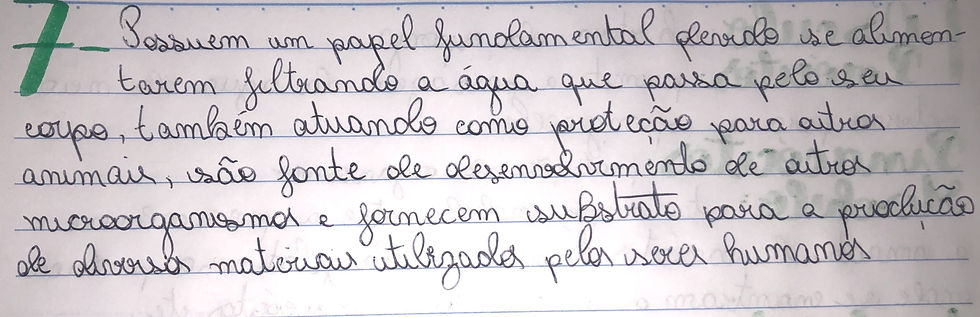 7- Possuem um papel fundamental devido se alimen-
tarem filtrando a água que passa pelo seu
corpo, também atuando como proteção para outros
animais, são fonte de desenvolvimento de outros
microorganismos e fornecem substrato para a produção
de diversos materiais utilizados pelos seres humanos